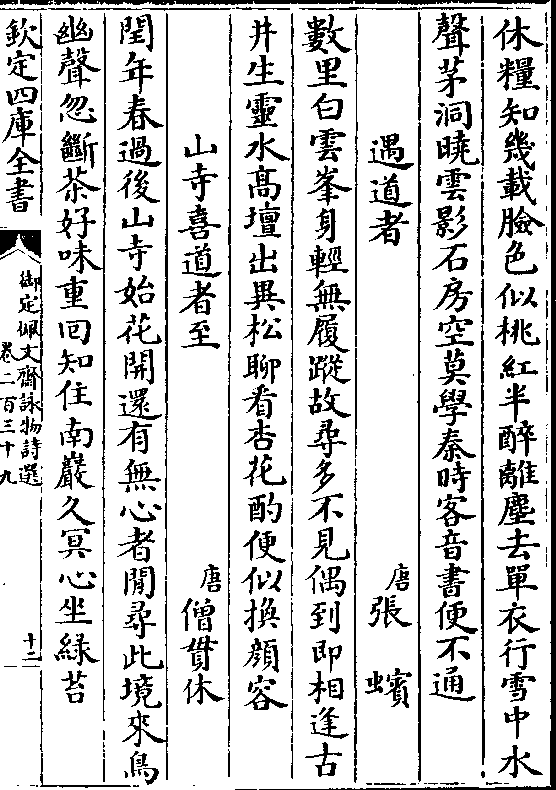 休糧知幾載臉色似桃紅半醉離塵去單衣行雪中水
聲茅洞曉雲影石房空莫學秦時客音書便不通
遇道者 唐張蠙
數里白雲峯身輕無履蹤故尋多不見偶到即相逢古
井生靈水高壇出異松聊看杏花酌便似換顔容
山寺喜道者至 唐僧貫休
閏年春過後山寺始花開還有無心者閒尋此境來鳥
幽聲忽斷茶好味重回知住南巖久冥心坐緑苔
欽定四庫全書
御定佩文齋詠物詩選
卷二百三十九
十二